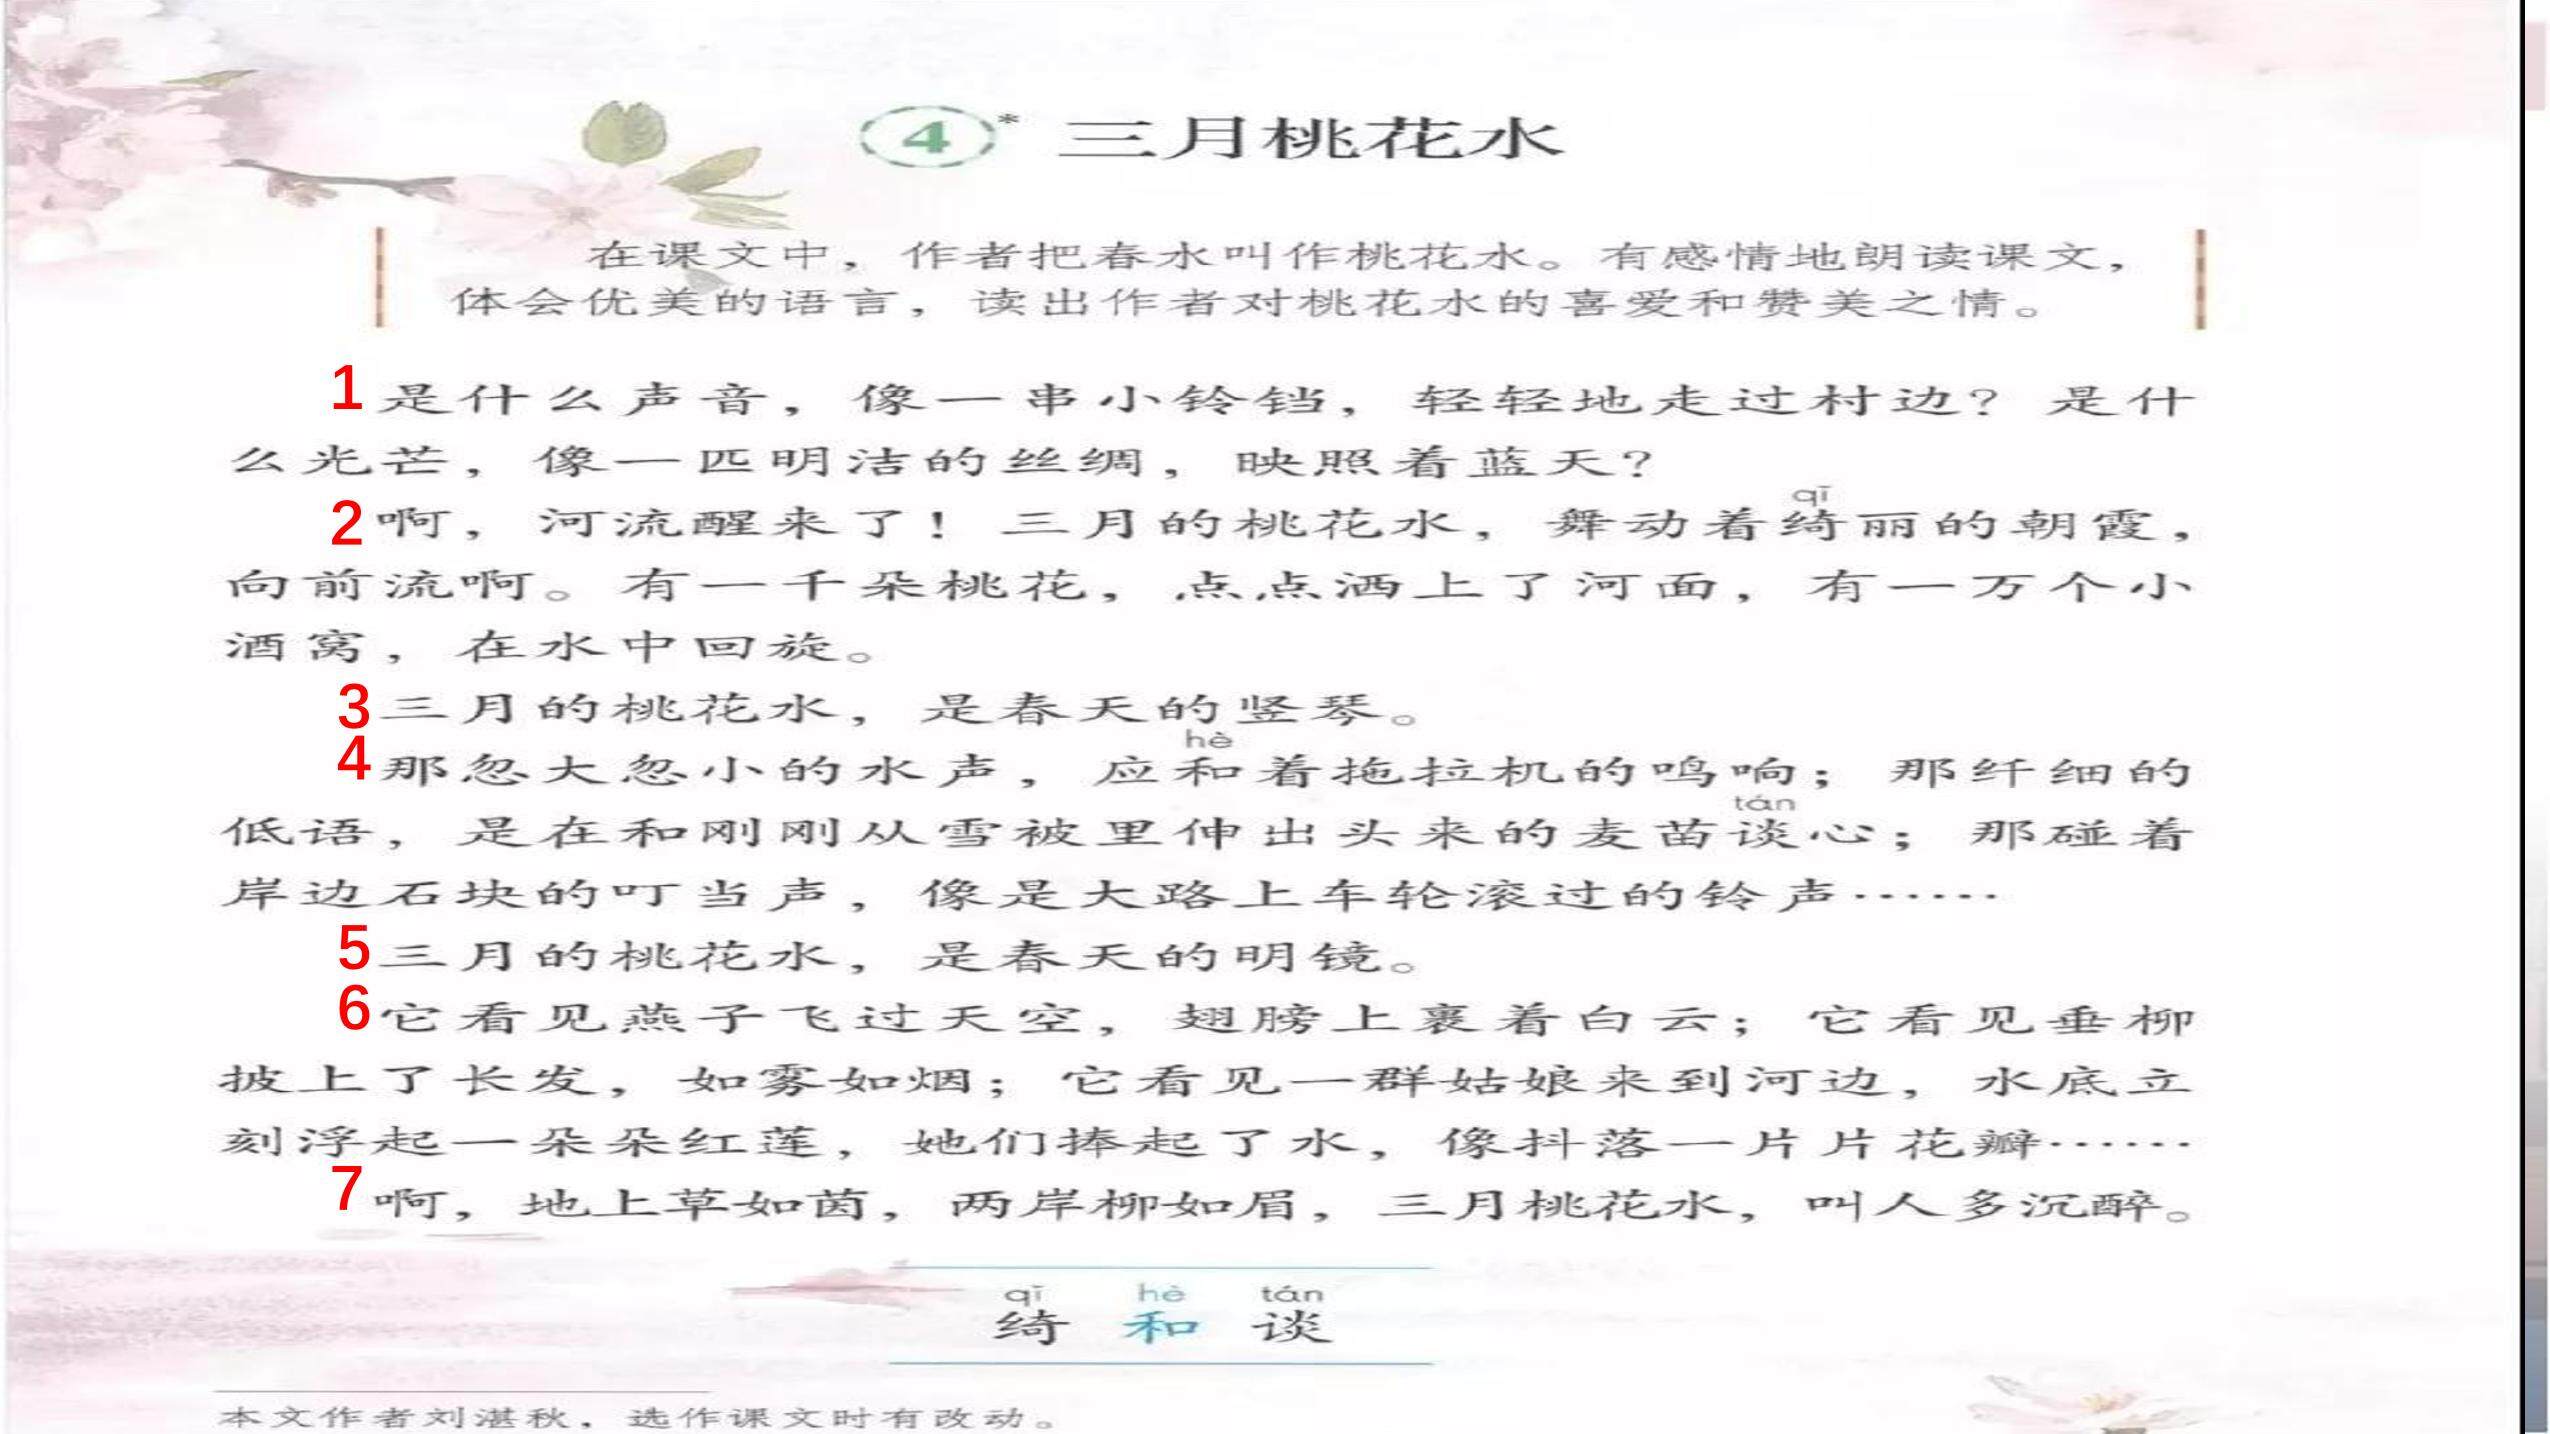 4* 三月桃花水
在课文中，作者把春水叫作桃花水。有感情地朗读课文，
体会优美的语言，读出作者对桃花水的喜爱和赞美之情。
1 是什么声音，像一串小铃铛，轻轻地走过村边？是什
么光芒，像一匹明洁的丝绸，映照着蓝天？
qǐ
2 啊，河流醒来了！三月的桃花水，舞动着绮丽的朝霞，
向前流啊。有一千朵桃花，点点洒上了河面，有一万个小
酒窝，在水中回旋。
3 三月的桃花水，是春天的竖琴。
hè
4 那忽大忽小的水声，应和着拖拉机的鸣响；那纤细的
tán
低语，是在和刚刚从雪被里伸出头来的麦苗谈心；那碰着
岸边石块的叮当声，像是大路上车轮滚过的铃声……
5 三月的桃花水，是春天的明镜。
6 它看见燕子飞过天空，翅膀上裹着白云；它看见垂柳
披上了长发，如雾如烟；它看见一群姑娘来到河边，水底立
刻浮起一朵朵红莲，她们捧起了水，像抖落一片片花瓣……
7 啊，地上草如茵，两岸柳如眉，三月桃花水，叫人多沉醉。
qǐ hè tán
绮 和 谈
本文作者刘湛秋，选作课文时有改动。